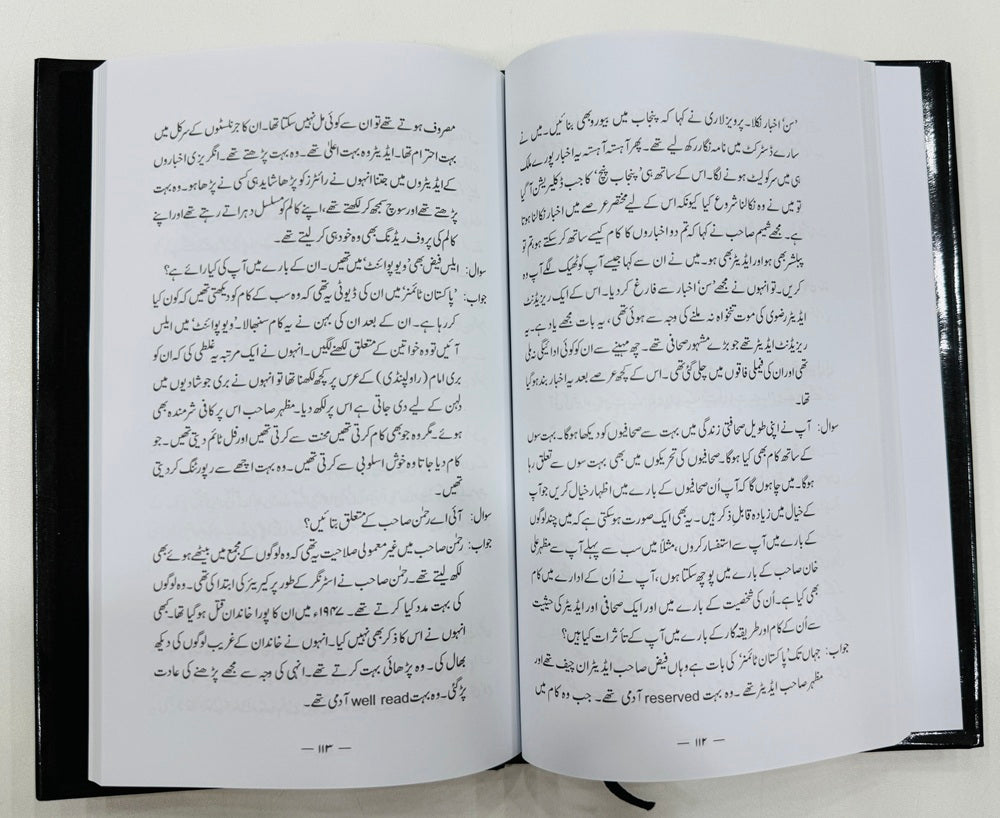 'سن' اخبار نکلا۔ پرویز لاری نے کہا کہ پنجاب میں بیورو بھی بنائیں۔ میں نے
سارے ڈسٹرکٹ میں نامہ نگار رکھ لیے تھے۔ پھر آہستہ آہستہ یہ اخبار پورے ملک
ہی میں سرکولیٹ ہونے لگا۔ اس کے ساتھ ہی 'پنجاب پنچ' کا جب ڈکلیریشن آ گیا
تو میں نے وہ نکالنا شروع کیا کیونکہ اس کے لیے مختصر عرصے میں اخبار نکالنا ہوتا
ہے۔ مجھے شمیم صاحب نے کہا کہ تم دو اخباروں کا کام کیسے ساتھ کر سکتے ہو، تم تو
پبلشر بھی ہو اور ایڈیٹر بھی ہو۔ میں نے ان سے کہا جیسے آپ کو ٹھیک لگے آپ وہ
کریں۔ تو انہوں نے مجھے 'سن' اخبار سے فارغ کر دیا۔ اس کے ایک ریزیڈنٹ
ایڈیٹر رضوی کی موت تنخواہ نہ ملنے کی وجہ سے ہوئی تھی، یہ بات مجھے یاد ہے۔ یہ
ریزیڈنٹ ایڈیٹر تھے جو بڑے مشہور صحافی تھے۔ چھ مہینے سے ان کو کوئی ادائیگی نہ ملی
تھی اور ان کی فیملی فاقوں میں چلی گئی تھی۔ اس کے کچھ عرصے بعد یہ اخبار بند ہو گیا
تھا۔
سوال: آپ نے اپنی طویل صحافتی زندگی میں بہت سے صحافیوں کو دیکھا ہو گا۔ بہت سوں
کے ساتھ کام بھی کیا ہو گا۔ صحافیوں کی تحریکوں میں بھی بہت سوں سے تعلق رہا
ہو گا۔ میں چاہوں گا کہ آپ اُن صحافیوں کے بارے میں اظہار خیال کریں جو آپ
کے خیال میں زیادہ قابلِ ذکر ہیں۔ یہ بھی ایک صورت ہو سکتی ہے کہ میں چند لوگوں
کے بارے میں آپ سے استفسار کروں، مثلاً میں سب سے پہلے آپ سے مظہر علی
خان صاحب کے بارے میں پوچھ سکتا ہوں، آپ نے اُن کے ادارے میں کام
بھی کیا ہے۔ اُن کی شخصیت کے بارے میں اور ایک صحافی اور ایڈیٹر کی حیثیت
سے اُن کے کام اور طریقہ کار کے بارے میں آپ کے تأثرات کیا ہیں؟
جواب: جہاں تک 'پاکستان ٹائمز' کی بات ہے وہاں فیض صاحب ایڈیٹر ان چیف تھے اور
مظہر صاحب ایڈیٹر تھے۔ وہ بہت reserved آدمی تھے۔ جب وہ کام میں
— ۱۱۲ —
مصروف ہوتے تھے تو ان سے کوئی مل نہیں سکتا تھا۔ ان کا جرنلسٹوں کے سرکل میں
بہت احترام تھا۔ ایڈیٹر وہ بہت اعلیٰ تھے۔ وہ بہت پڑھتے تھے۔ انگریزی اخباروں
کے ایڈیٹروں میں جتنا انہوں نے رائٹرز کو پڑھا شاید ہی کسی نے پڑھا ہو۔ وہ بہت
پڑھتے تھے اور سوچ سمجھ کر لکھتے تھے، اپنے کالم کو مسلسل دہراتے رہتے تھے اور اپنے
کالم کی پروف ریڈنگ بھی وہ خود ہی کر لیتے تھے۔
سوال: ایلس فیض بھی 'ویو پوائنٹ' میں تھیں۔ ان کے بارے میں آپ کی کیا رائے ہے؟
جواب: 'پاکستان ٹائمز' میں ان کی ڈیوٹی یہ تھی کہ وہ سب کے کام کو دیکھتی تھیں کہ کون کیا
کر رہا ہے۔ ان کے بعد ان کی بہن نے یہ کام سنبھالا۔ 'ویو پوائنٹ' میں ایلس
آئیں تو وہ خواتین کے متعلق لکھنے لگیں۔ انہوں نے ایک مرتبہ یہ غلطی کی کہ ان کو
بری امام (راولپنڈی) کے عرس پر کچھ لکھنا تھا تو انہوں نے بری جو شادیوں میں
دلہن کے لیے دی جاتی ہے اس پر لکھ دیا۔ مظہر صاحب اس پر کافی شرمندہ بھی
ہوئے۔ مگر وہ جو بھی کام کرتی تھیں محنت سے کرتی تھیں اور فل ٹائم دیتی تھیں۔ جو
کام دیا جاتا وہ خوش اسلوبی سے کرتی تھیں۔ وہ بہت اچھے سے رپورٹنگ کر دیتی
تھیں۔
سوال: آئی اے رحمٰن صاحب کے متعلق بتائیں؟
جواب: رحمٰن صاحب میں غیر معمولی صلاحیت یہ تھی کہ وہ لوگوں کے مجمع میں بیٹھے ہوئے بھی
لکھ لیتے تھے۔ رحمٰن صاحب نے اسٹرنگر کے طور پر کیریئر کی ابتدا کی تھی۔ وہ لوگوں
کی بہت مدد کیا کرتے تھے۔ ۱۹۴۷ء میں ان کا پورا خاندان قتل ہو گیا تھا۔ کبھی
انہوں نے اس کا ذکر بھی نہیں کیا۔ انہوں نے خاندان کے غریب لوگوں کی دیکھ
بھال کی۔ وہ پڑھائی بہت کرتے تھے۔ انہی کی وجہ سے مجھے پڑھنے کی عادت
پڑ گئی۔ وہ بہت well read آدمی تھے۔
— ۱۱۳ —